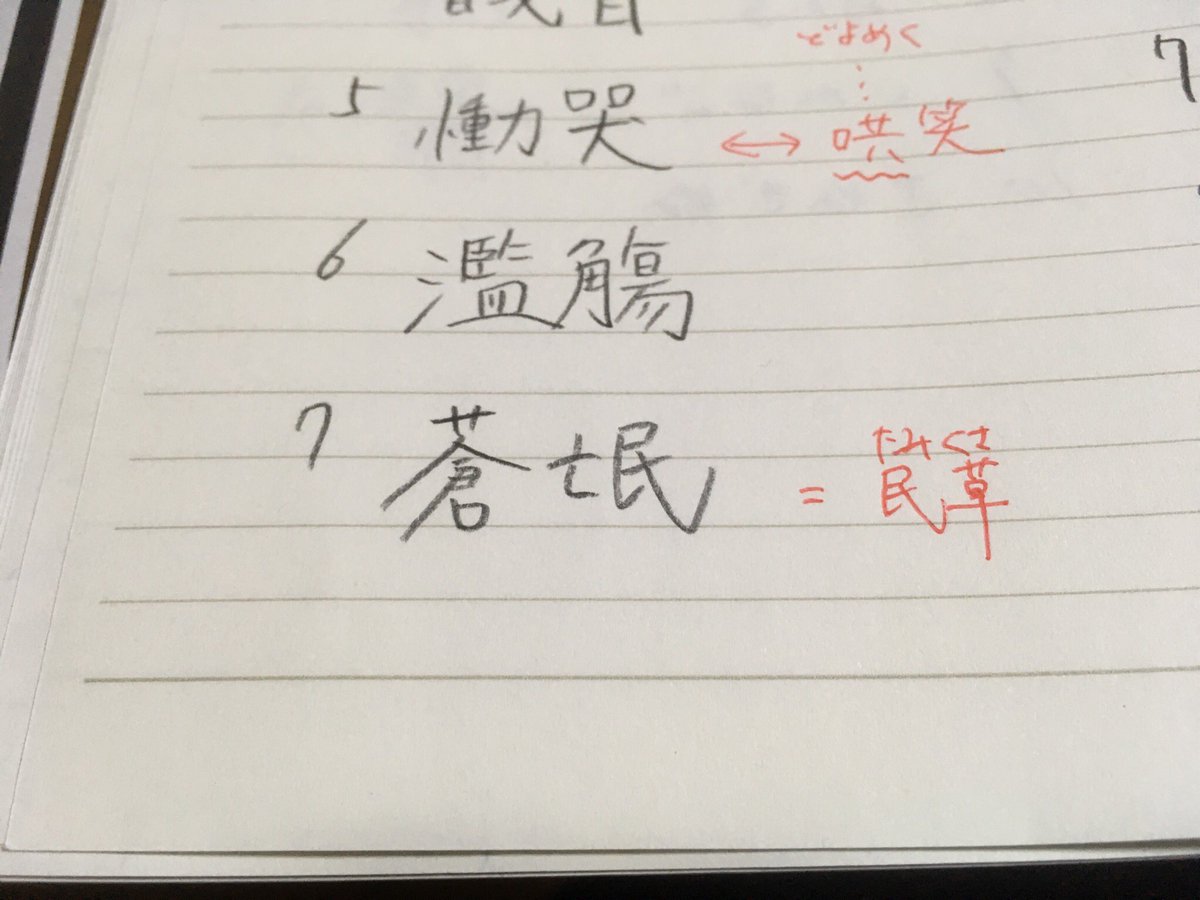 どよめく
5 慟哭 ↔ 哄笑
6 濫觴
たみくさ
7 蒼氓 = 民草
7